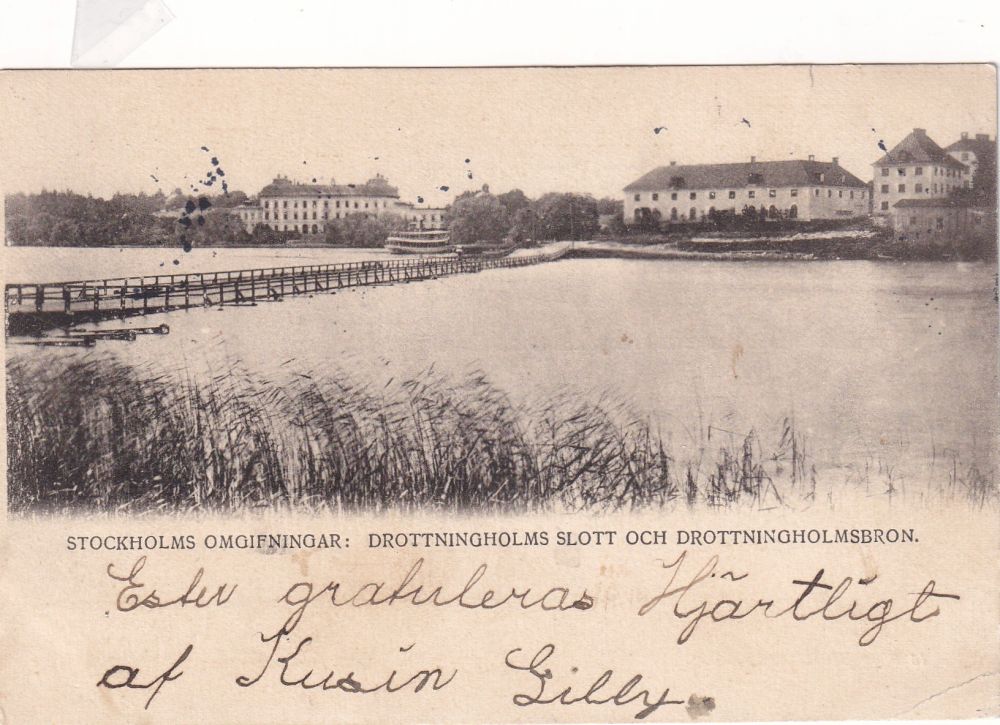 STOCKHOLMS OMGIFNINGAR: DROTTNINGHOLMS SLOTT OCH DROTTNINGHOLMSBRON.
Ester gratuleras Hjärtligt
af Kusin Gibby